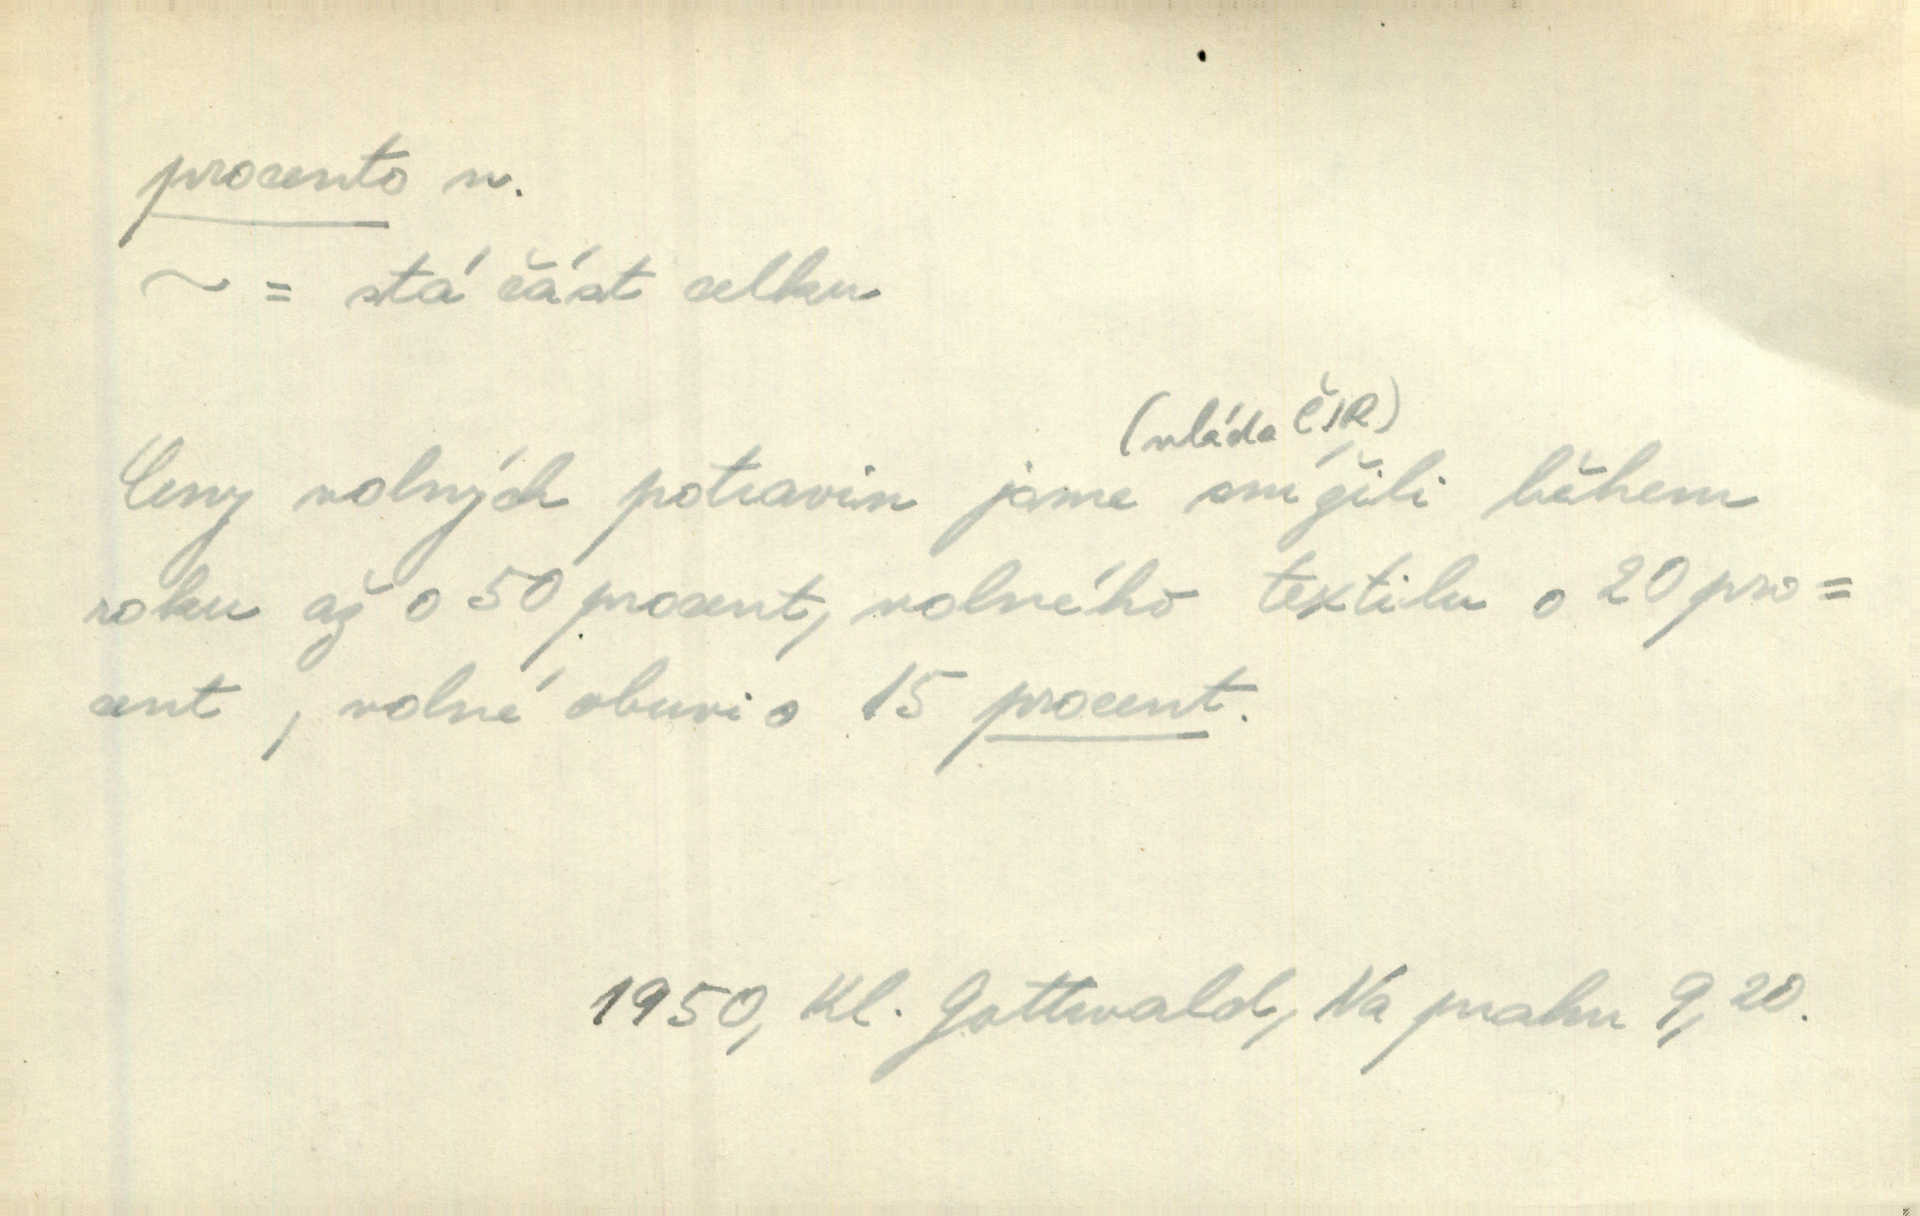 procento n.
~ = stá část celku
(vláda ČSR)
Ceny volných potravin jsme snížili během
roku až o 50 procent, volného textilu o 20 pro=
cent, volné obuvi o 15 procent.
1950, Kl. Gottwald, Na prahu 9, 20.